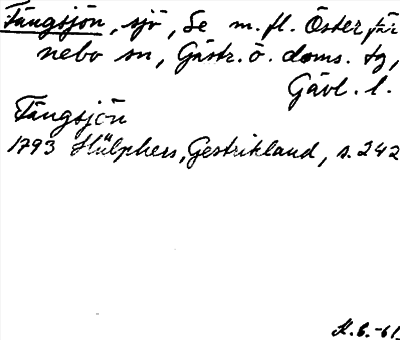 Tängsjön, sjö, Se m. fl. Österfär
nebo sn, Gästr. ö. doms. tg,
Gävl. l.
Tängsjön
1793 Hülphers, Gestrikland, s. 242
H.C.-61